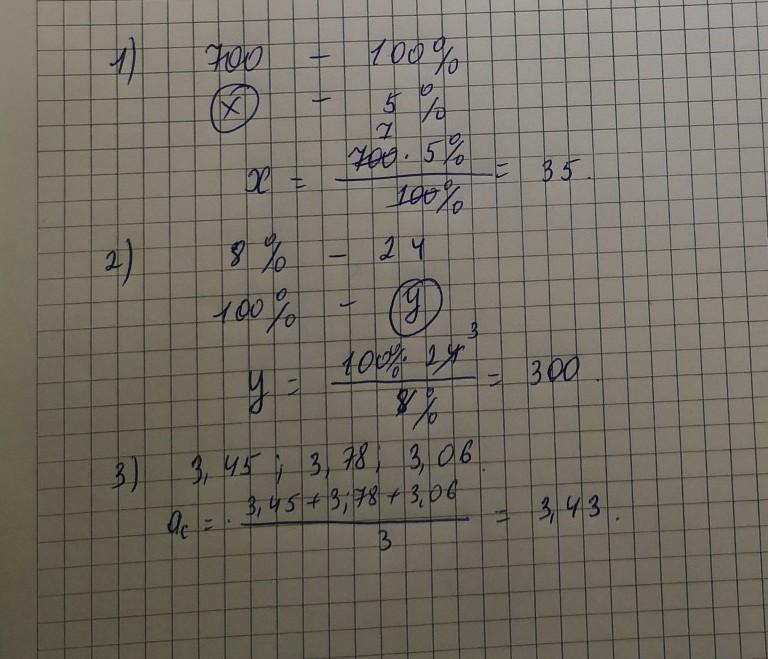 1) 700 - 100%
x - 5%
7
x = 700 · 5% / 100% = 35.
2) 8% - 24
100% - y
3
y = 100% · 24 / 8% = 300.
3) 3,45; 3,78; 3,06.
ac = 3,45 + 3,78 + 3,06 / 3 = 3,43.